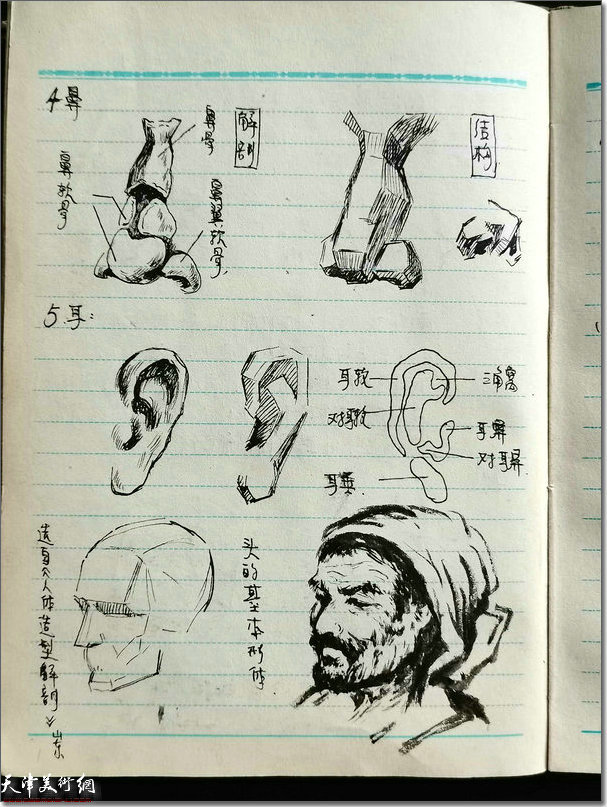 4 鼻
鼻骨
解剖
结构
鼻软骨
鼻翼软骨
5. 耳:
耳轮
三角窝
对耳轮
耳屏
对耳屏
耳垂
头的基本形体
人体造型解剖
山东
天津美術網